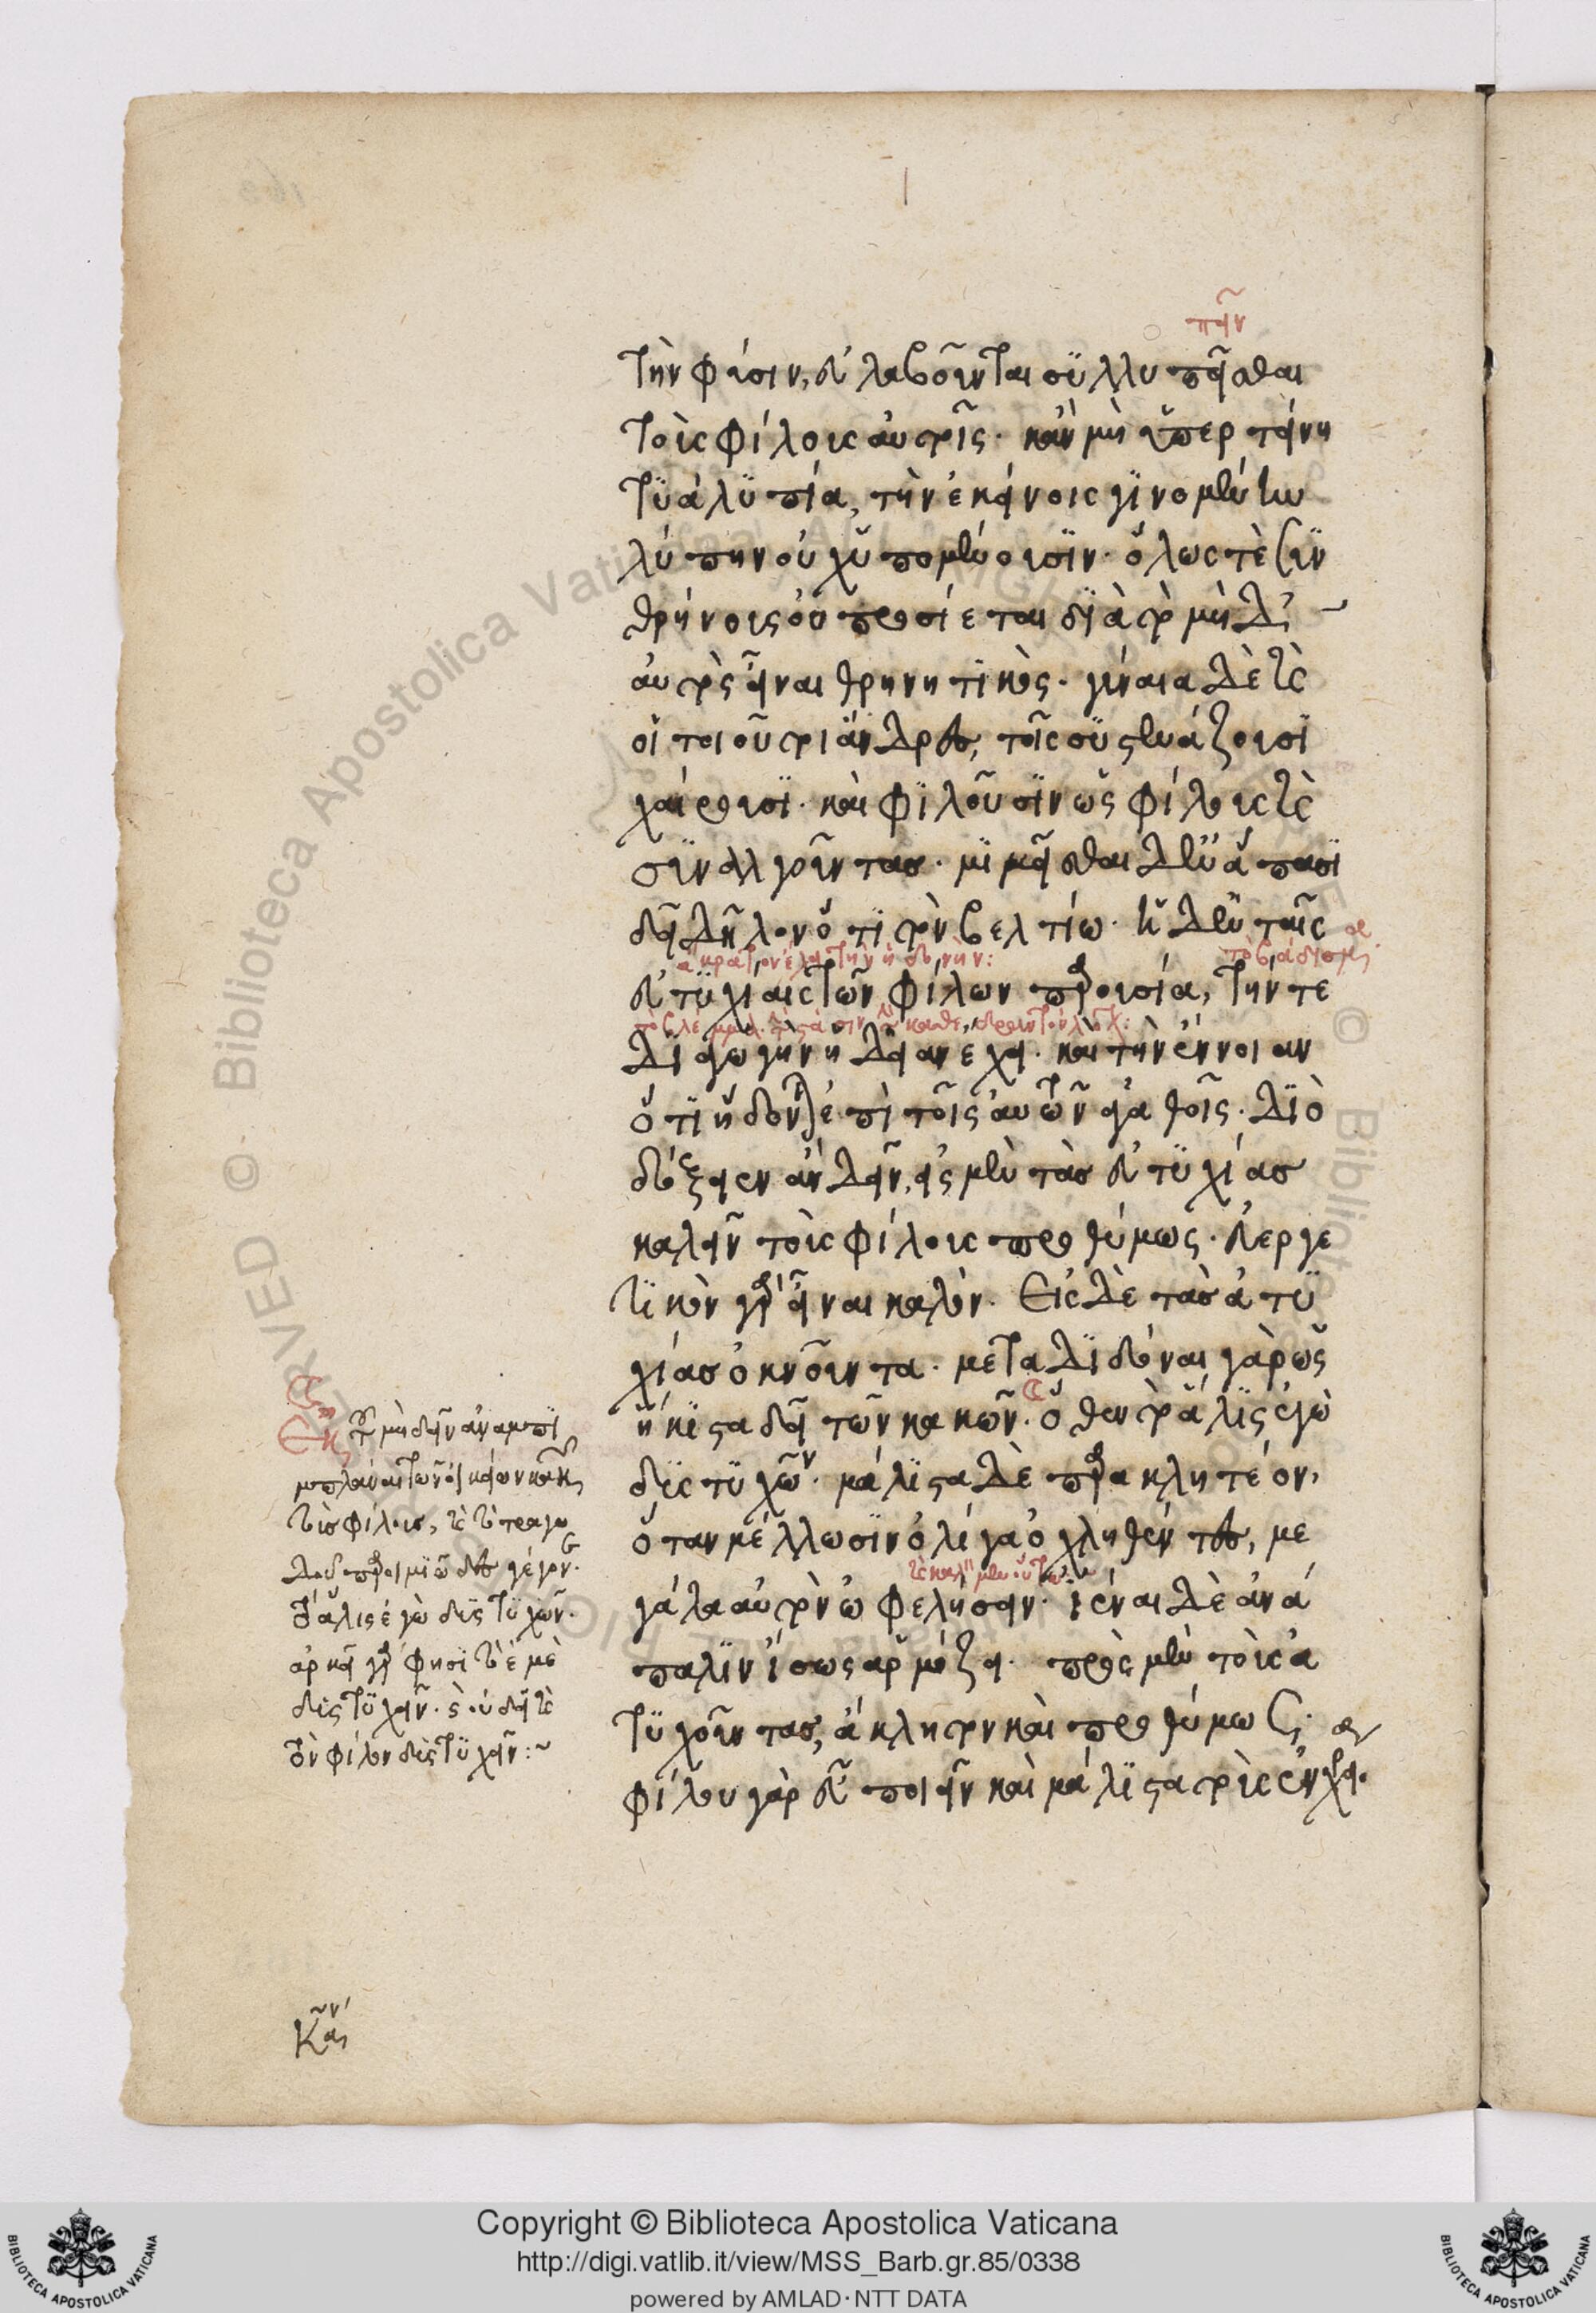 τὴν φύσιν, εὐλαβοῦνται συλλυπεῖσθαι
τοῖς φίλοις αὐτοῖς. κἂν μὴ ὑπερτείνη
τῇ ἀλυπία, τὴν ἐκείνοις γινομένην
λύπην οὐχ ὑπομένουσιν. ὅλως τὲ συν
θρήνους οὐ προσίεται διὰ τὸ μὴ δ'
αὐτὸς εἶναι θρηνητικὸς. γύναια δὲ καὶ
οἱ τοιοῦτοι ἄνδρες, τοῖς συστενάζουσι
χαίρουσι. καὶ φιλοῦσιν ὡς φίλους καὶ
συναλγοῦντας. μιμεῖσθαι δ' ἐν ἅπασι
δεῖ δῆλον ὅτι τὸν βελτίω. ἡ δ' ἐν ταῖς
εὐτυχίαις τῶν φίλων παρουσία, τήν τε
διαγωγὴν ἡδεῖαν ἔχει. καὶ τὴν ἔννοιαν
ὅτι ἥδονται ἐπὶ τοῖς αὐτῶν ἀγαθοῖς. διὸ
δόξειεν ἂν δεῖν, εἰς μὲν τὰς εὐτυχίας
καλεῖν τοὺς φίλους προθύμως. εὐεργε
τικὸν γὰρ εἶναι καλὸν. Εἰς δὲ τὰς ἀτυ
χίας ὀκνοῦντα. μεταδιδόναι γὰρ ὡς
ἥκιστα δεῖ τῶν κακῶν. ὅθεν τὸ ἅλις ἐγὼ
δυστυχῶν. μάλιστα δὲ παρακλητέον,
ὅταν μέλλωσιν ὀλίγα ὀχληθέντες, με
γάλα αὐτὸν ὠφελήσειν. ἰέναι δὲ ἀνά
παλιν ἴσως ἁρμόζει. πρὸς μὲν τοὺς ἀ
τυχοῦντας, ἄκλητον καὶ προθύμως.
φίλου γὰρ εὖ ποιεῖν καὶ μάλιστα τοὺς ἐν χρεί
τὸ μὴ δεῖν ἀναμπι
τοὺς φίλους, καὶ τὸ τραγω
τὸ ἅλις ἐγὼ δυστυχῶν.
ἀρκεῖ γάρ φησι τὸ ἐμὲ
δυστυχεῖν. οὐ δεῖ καὶ
τὸν φίλον δυστυχεῖν:~
Copyright © Biblioteca Apostolica Vaticana
http://digi.vatlib.it/view/MSS_Barb.gr.85/0338
powered by AMLAD·NTT DATA